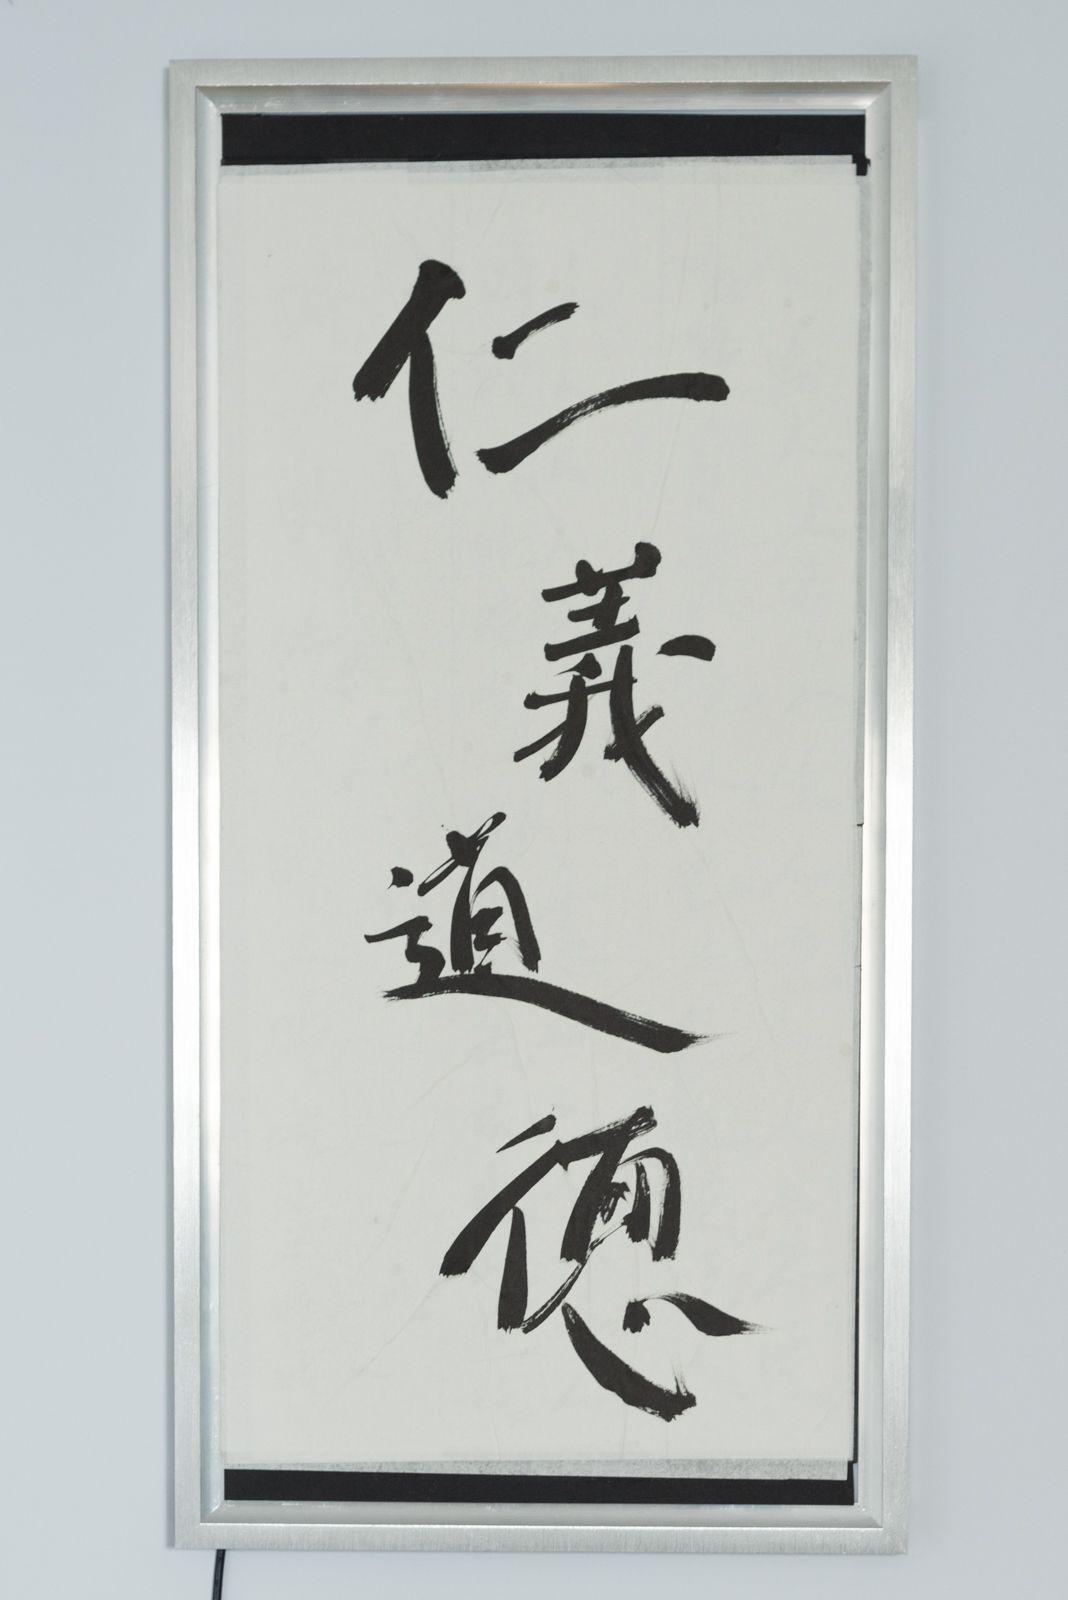 仁義道徳